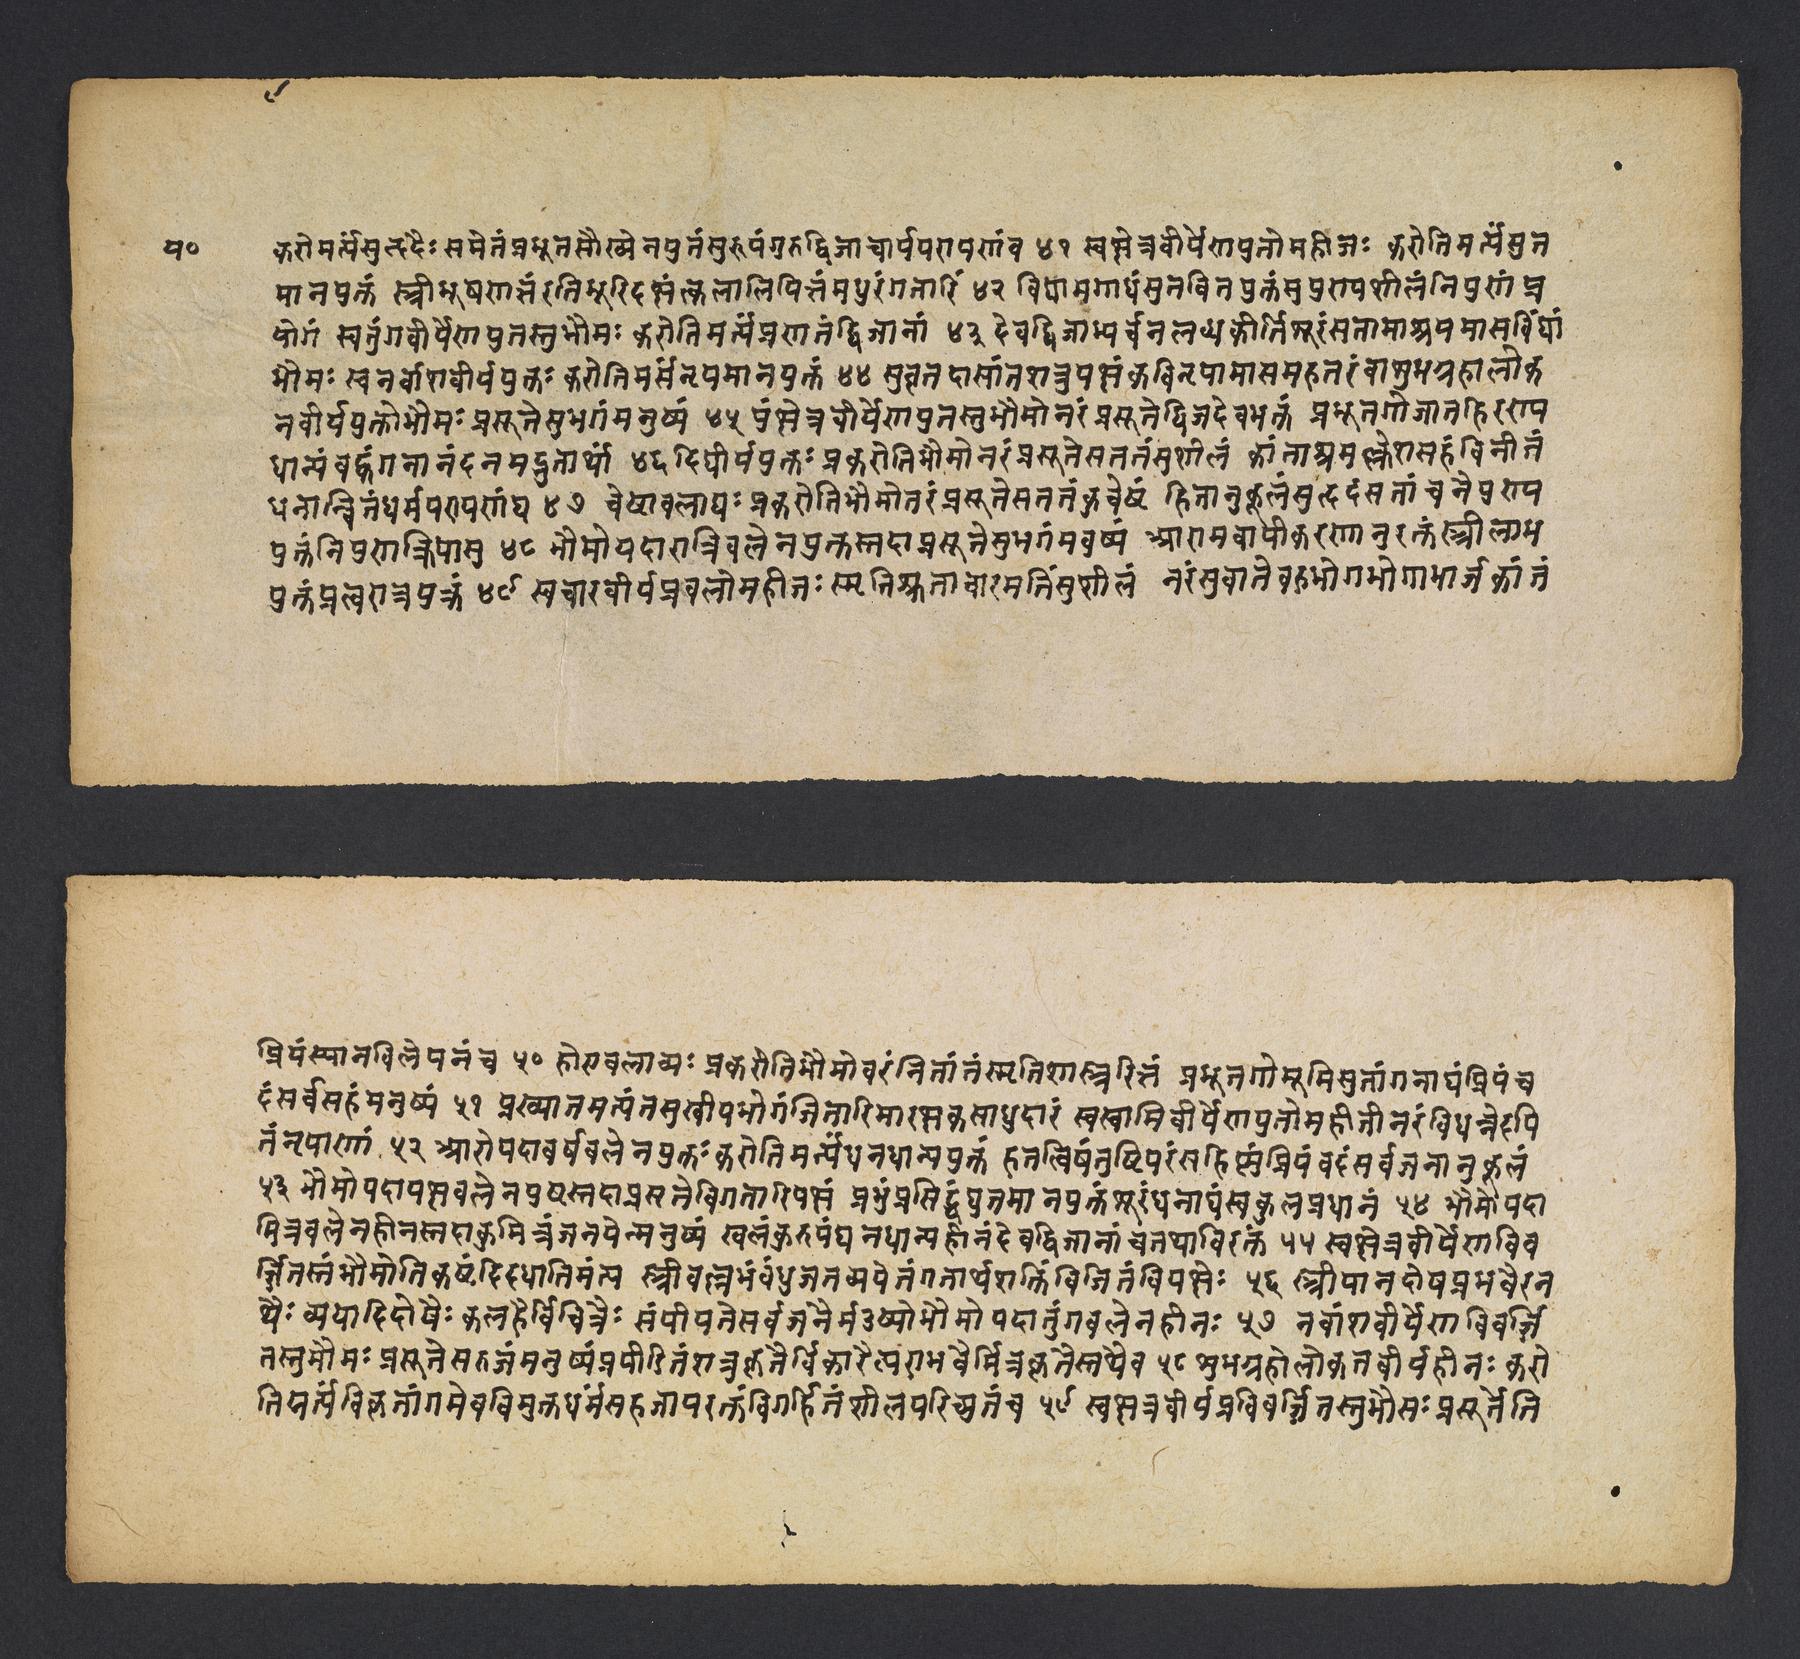 प० करोमर्त्यंसुहृदैः समेतंप्रभूतसौख्येनयुतंसुरुपंगुरुद्विजाचार्यपरायणांच ४१ स्वक्षेत्रवीर्येणयुतोमहीजः करोतिमर्त्यंसुत
मानयुक्तं स्त्रीभूषणासंरतिभूरिदक्षंकलालिपिज्ञंमधुरंगतारिं ४२ विद्यामगाधंसुतवित्तयुक्तंसुपुण्यशीलंनिपुणं प्र
योगं स्वतुंगवीर्येणयुतस्तुभौमः करोतिमर्त्यंप्रणतंद्विजानां ४३ देवद्विजाभ्यर्चनलब्धकीर्तिंशूरंसतामाश्रयमासविद्यां
भौमः स्वनवांशवीर्ययुक्तः करोतिमर्त्यंनृपमानयुक्तं ४४ सुवृत्तदासांतशत्रुपक्षंकविंनृपामासमहत्तरंवा शुभग्रहालोक
नवीर्ययुक्तोभौमः प्रसूतेसुभगंमनुष्यं ४५ पुंक्षेत्रवीर्येणयुतस्तुभौमोनरंप्रसूतेद्विजदेवभक्तं प्रभूतगोजातहिरण्य
धान्यंवह्वंगनानंदनमद्भुतार्थां ४६ दिग्वीर्ययुक्तः प्रकरोतिभौमोनरंप्रसूतेसततंसुशीलं कांताश्रमुक्लेशसहंविनीतं
धनान्वितंधर्मपरायणांच ४७ चेष्टाबलाद्यः प्रकरोतिभौमोनरंप्रसूतेसततंकुचेष्टं हितानुकूलंसुहृदंसतां च नैपुण्य
युक्तंनिपुणाक्रियासु ४८ भौमोयदारात्रिबलेनयुक्तस्तदाप्रसूतेसुभगंमनुष्यं आरामवापीकरणानुरक्तंस्त्रीलाभ
युक्तंप्रलवणत्रयुक्तं ४९ स्ववारवीर्यप्रबलोमहीजः स्मृतिश्रुताचारमतिंसुशीलं नरंसुवातेबहुभोगभोगाभार्जकांतं
प्रियंस्थानविलेपनं च ५० होराबलाढ्यः प्रकरोतिभौमोवरंनितांतंस्मृतिशास्त्ररित्तं प्रभूतगोभूमिसुतांगनाद्यंप्रियंच
दंसर्वसहंमनुष्यं ५१ प्रख्यातमत्यंतसुखीयभोगंजितारिमारक्तकसाधुदारं स्वस्वामिवीर्येणयुतोमहीजोनरंविधत्तेदृपि
तंनृपाणां ५२ आरोयदावर्षबलेनयुक्तः करोतिमर्त्यंधनधान्ययुक्तं हतत्विषंतुष्टिपरंसहिष्णुंप्रियंवदंसर्वजनानुकूलं
५३ भौमोयदापक्षबलेनपुष्टस्तदाप्रसूतेविगतारिपक्षं प्रभुंप्रसिद्धंयुतमानयुक्तंशूरंधनाद्यंस्वकुलप्रधानं ५४ भौमोयदा
मित्रबलेनहीनस्तदाकुमित्रंजनयेन्मनुष्यं खलंकुरुपंधनधान्यहीनंदेवद्विजानांचतथाविरक्तं ५५ स्वक्षेत्रवीर्येणविव
र्ज्जितस्तंभौमोतिकष्टंदिदधातिमंत्य स्त्रीवल्लभंबंधुजनव्यपेतंगतार्थशक्तिंविजितंविपक्षैः ५६ स्त्रीपानदोषप्रभवैरन
र्थैः व्यथादिदोषैः कलहैर्विचित्रैः संपीयतेसर्वजनैर्मनुष्योभौमो यदातुंगबलेनहीनः ५७ नवांशवीर्येणविवर्ज्जि
तस्तुभौमः प्रसूतेसरुजंमनुष्यंप्रपीडितंशत्रुकृतैर्विकारैःत्पराभवैर्मित्रकृतैस्तथैव ५८ शुभग्रहोलोकनवीर्यहीनः करो
तिमर्त्यंविकृतांगमेवविमुक्तधर्मंसहजापरक्तंविगर्हितंशीलपरिच्युतंच ५९ स्वक्षत्रवीर्यप्रविवर्ज्जितस्तुभौमः प्रसूतेति